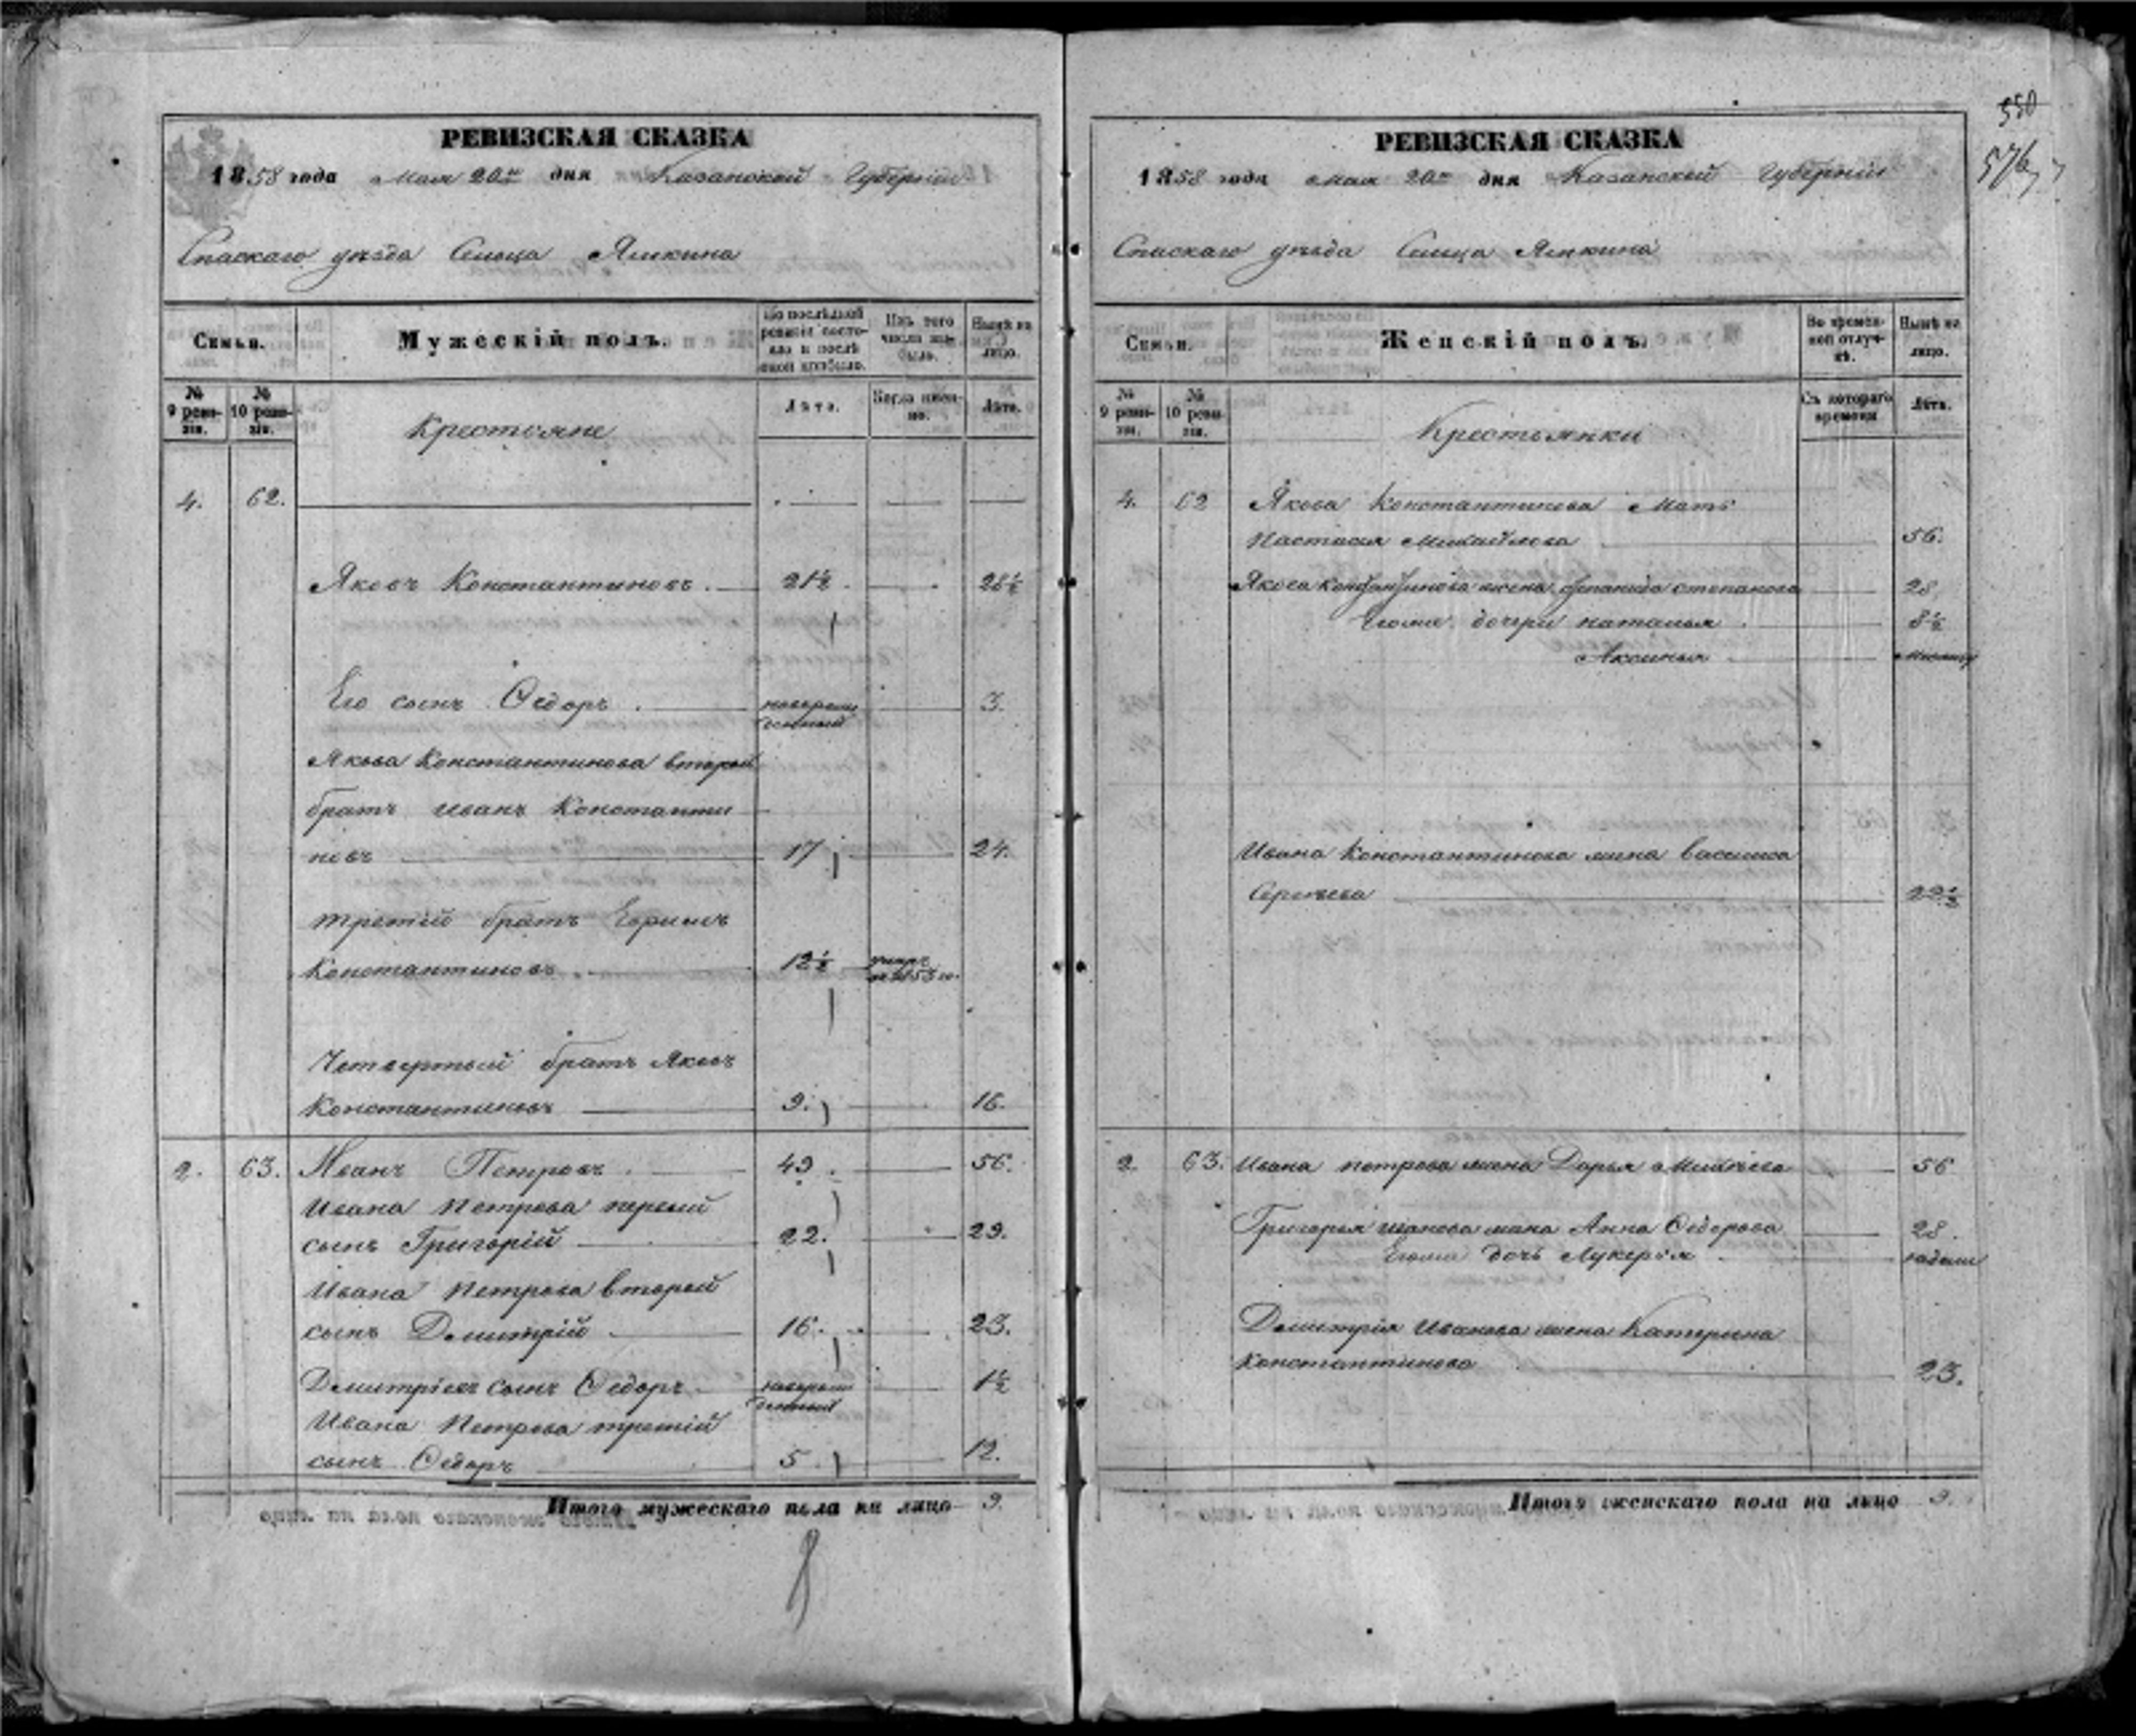 РЕВИЗСКАЯ СКАЗКА
1858 года Мая 20го дня Казанской Губерніи
Спаскаго уѣзда Сельца Ямкина
Семьи.
Мужескій полъ.
По послѣдней ревизіи состояло и послѣ оной прибыло.
Изъ того числа выбыло.
Нынѣ на лицо.
№ 9 ревизіи.
№ 10 ревизіи.
Крестьяне
Лѣта.
Когда именно.
Лѣта.
4. 62.
Яковъ Константиновъ. 21½ 28½
Его сынъ Ѳедоръ. новорожденный 3.
Якова Константинова второй
братъ Иванъ Константи
новъ 17 24.
третій братъ
Константиновъ. 12½ умеръ въ 1853 го.
Четвертый братъ Яковъ
Константиновъ 9. 16.
2. 63. Иванъ Петровъ. 49. 56.
Ивана Петрова первый
сынъ Григорій 22. 29.
Ивана Петрова второй
сынъ Дмитрій 16. 23.
Дмитріевъ сынъ Ѳедоръ новорожденный 1½
Ивана Петрова третій
сынъ Ѳедоръ 5. 12.
Итого мужескаго пола на лицо 9.
550
576
РЕВИЗСКАЯ СКАЗКА
1858 года мая 20го дня Казанской Губерніи
Спаскаго уѣзда Сельца Ямкина
Семьи.
Женскій полъ.
Во временной отлучкѣ.
Нынѣ на лицо.
№ 9 ревизіи.
№ 10 ревизіи.
Крестьянки
Съ котораго времени
Лѣта.
4. 62 Якова Константинова Мать
Настасья Михайлова 56.
Якова Константинова жена Степанида Степанова 28
Егоже дочери Наталья. 8½
Аксинья
Ивана Константинова жена Василиса
Сергѣева 22½
2 63. Ивана Петрова жена Дарья 56
Григорья Иванова жена Анна Ѳедорова 28.
Егоже дочь Лукерья.
Дмитрія Иванова жена Катерина
Константинова 23.
Итого женскаго пола на лицо 9.